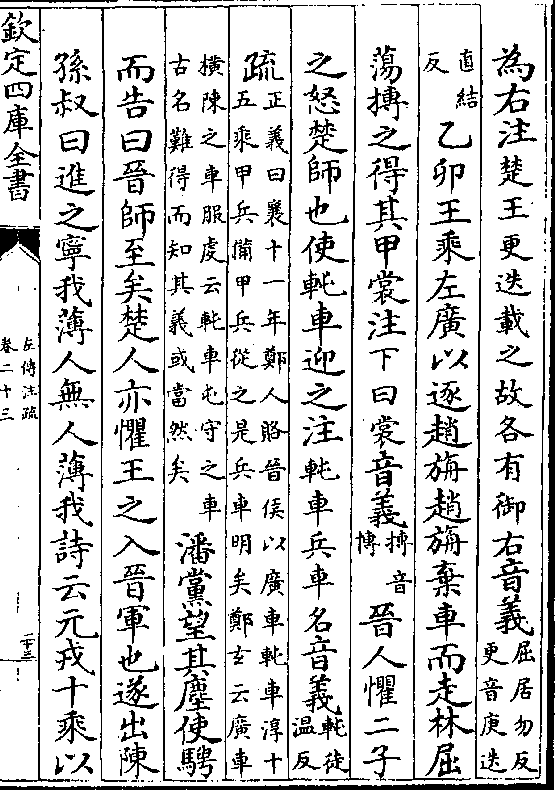 為右注楚王更迭載之故各有御右音義屈居勿反更音庚迭
直結反乙卯王乘左廣以逐趙旃趙旃棄車而走林屈
蕩搏之得其甲裳注下曰裳音義搏音博晉人懼二子
之怒楚師也使軘車迎之注軘車兵車名音義軘徒温反
疏正義曰襄十一年鄭人賂晉侯以廣車軘車淳十五乘甲兵備甲兵從之是兵車明矣鄭玄云廣車
橫陳之車服虔云軘車屯守之車古名難得而知其義或當然矣潘黨望其塵使騁
而告曰晉師至矣楚人亦懼王之入晉軍也遂出陳
孫叔曰進之寧我薄人無人薄我詩云元戎十乘以
欽定四庫全書
左傳注疏
卷二十三
二十三